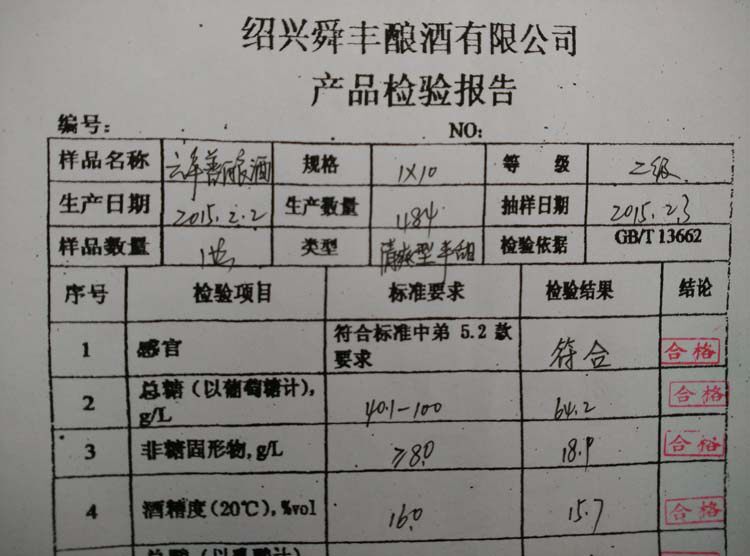 绍兴舜丰酿酒有限公司
产品检验报告
编号: NO:
样品名称 规格 1X10 等 级 二级
生产日期 2015.2.2 生产数量 484 抽样日期 2015.2.3
样品数量 类型 清爽型半甜 检验依据 GB/T 13662
序号 检验项目 标准要求 检验结果 结论
1 感官 符合标准中第 5.2 款 符合 合格
要求
2 总糖(以葡萄糖计), 40.1-100 64.2 合格
g/L
3 非糖固形物,g/L ≥8.0 18.9 合格
4 酒精度(20℃),%vol 16.0 15.7 合格